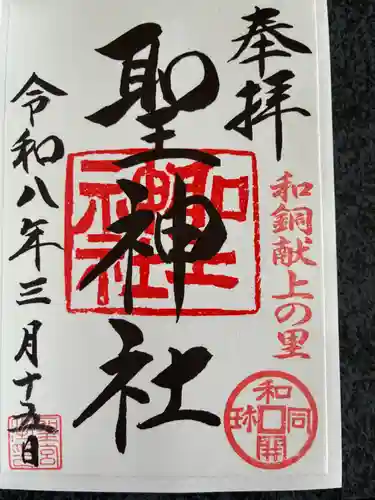 奉拝
和銅献上の里
聖神社
令和八年三月十五日
和同開珎
聖神社